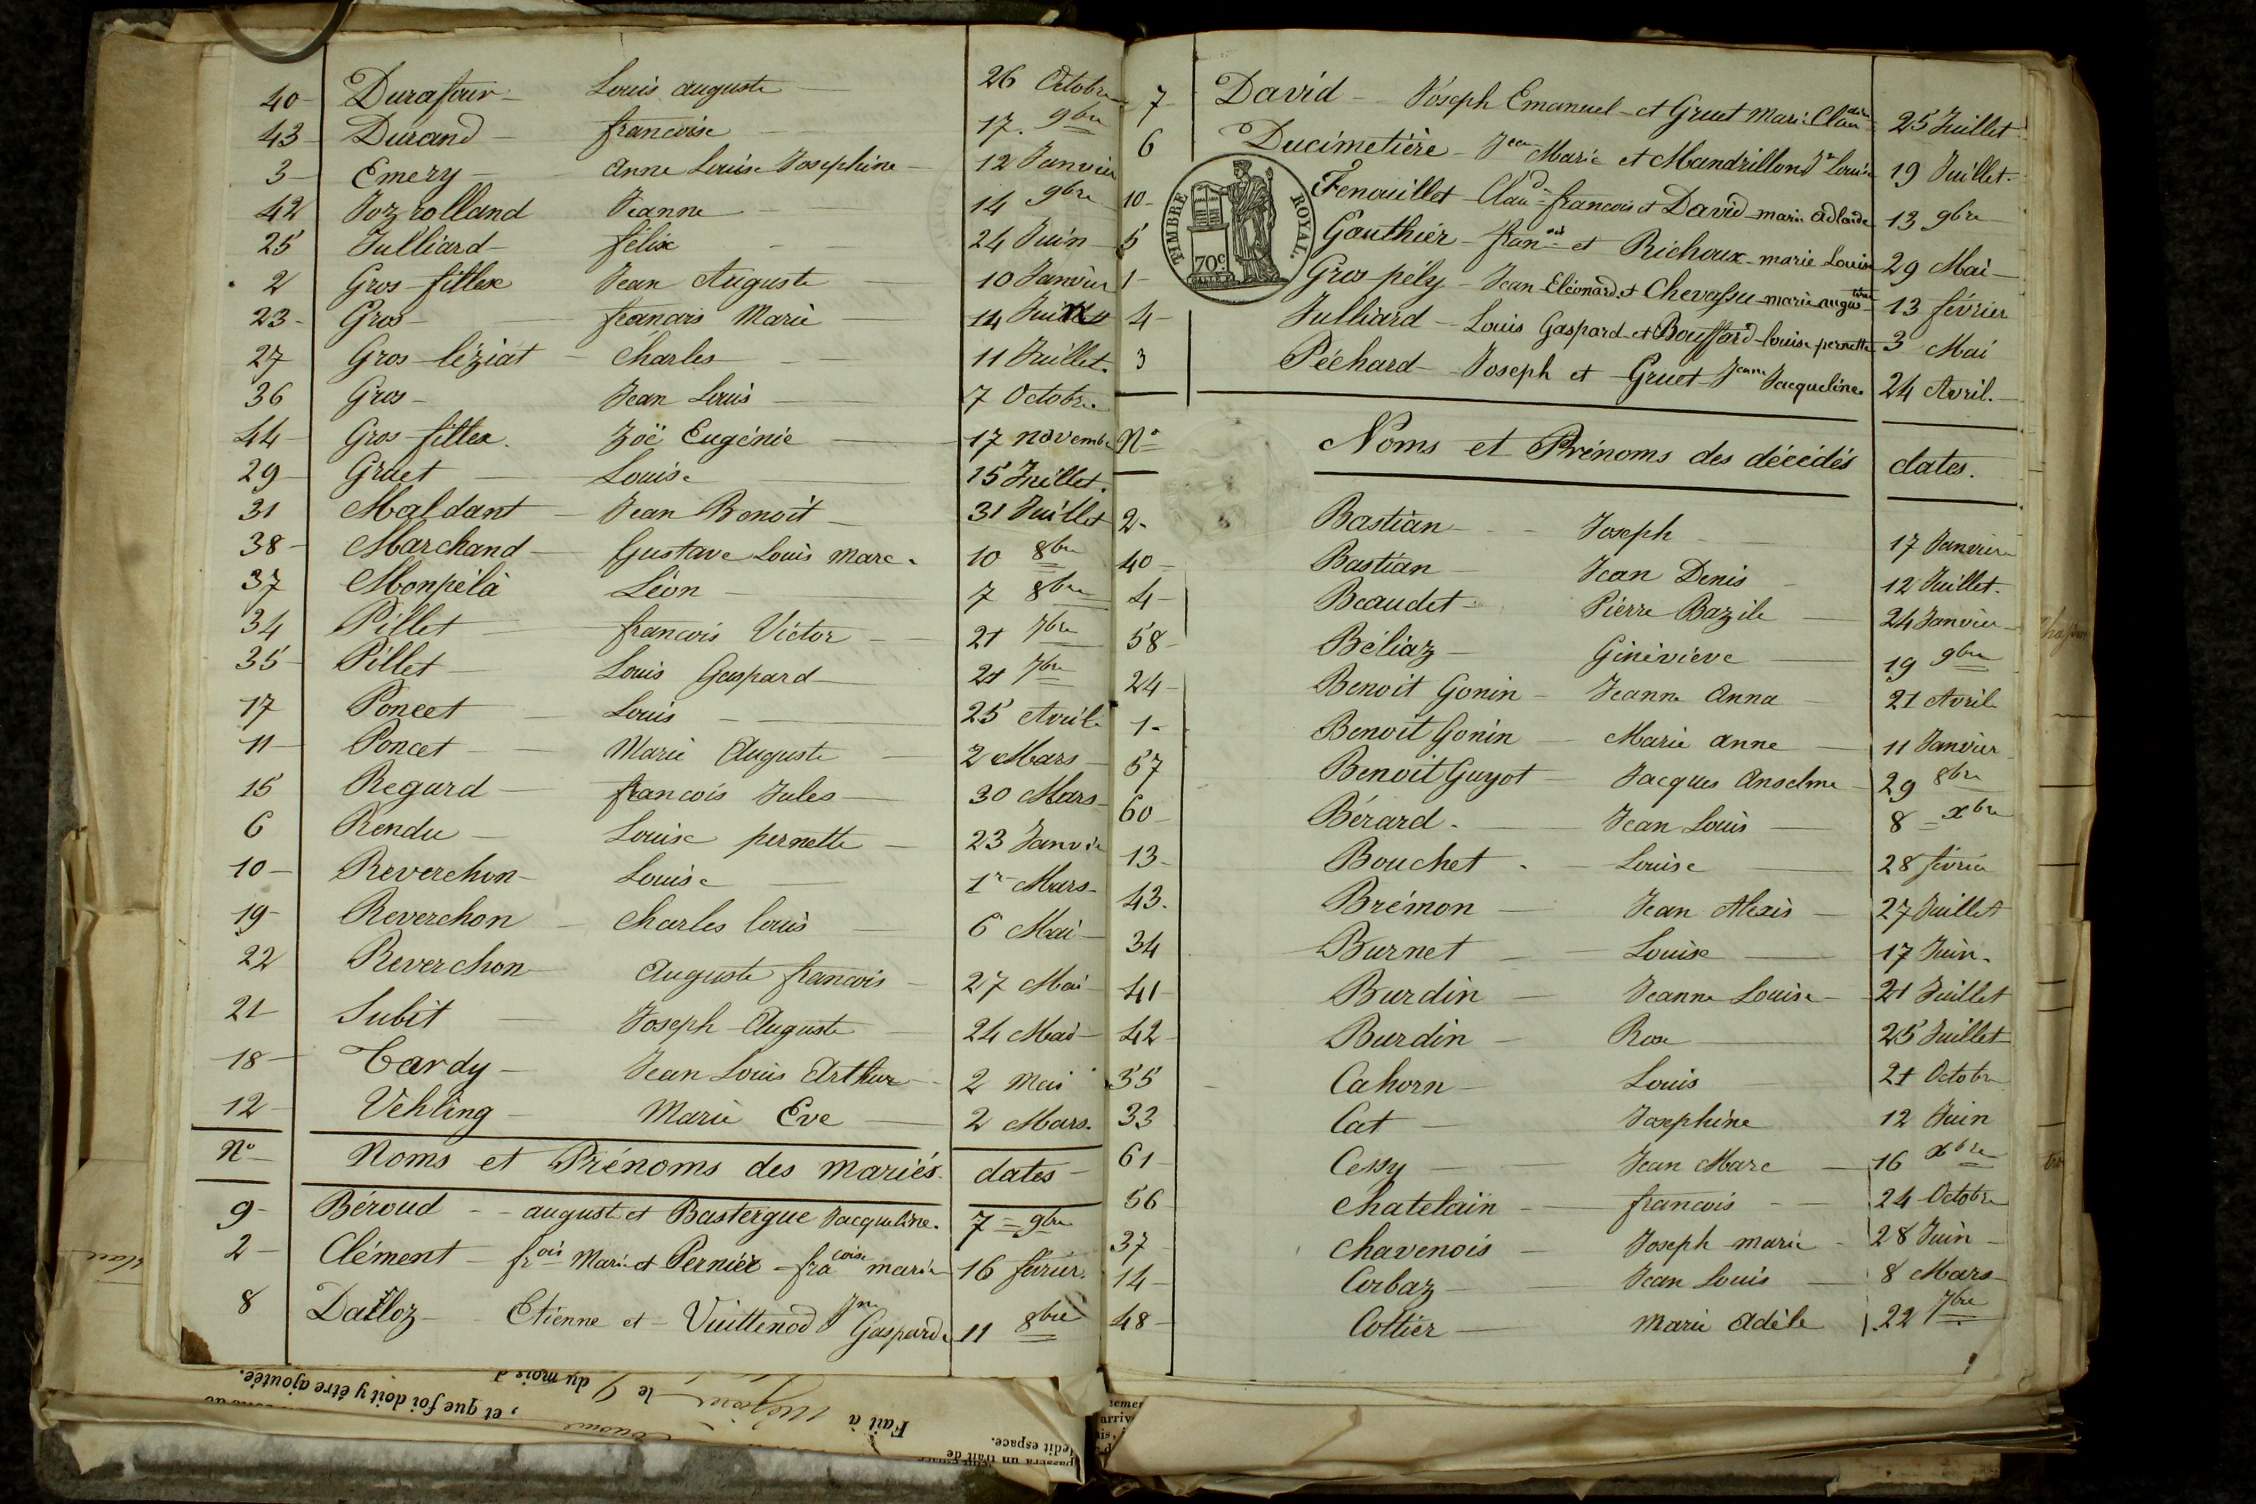 40 Durafour Louis auguste 26 Octobre
43 Durand francoise 17. 9bre
3 Emery anne Louise Josephine 12 Janvier
42 Joz rolland Jeanne 14 9bre
25 Julliard félix 24 Juin
2 Gros-fillex Jean Auguste 10 Janvier
23 Gros francois Marie 14
27 Gros-léziat Charles 11 Juillet.
36 Gros Jean Louis 7 Octobre
44 Gros-fillex. Zoë Eugénie 17 novembre
29 Gruet Louise 15 Juillet.
31 Maldant Jean Benoit 31 Juillet
38 Marchand Gustave Louis Marc. 10 8bre
37 Monpéla Léon 7 8bre
34 Pillet francois Victor 21 7bre
35 Pillet Louis Gaspard 21 7bre
17 Poncet Louis 25 Avril
11 Poncet Marie Auguste 2 Mars
15 Regard francois Jules 30 Mars
6 Rendu Louise pernette 23 Janvier
10 Reverchon Louise 1er Mars
19 Reverchon Charles louis 6 Mai
22 Reverchon Auguste francois 27 Mai
21 Subit Joseph Auguste 24 Mai
18 Tardy Jean Louis Arthur 2 Mai
12 Vehling Marie Eve 2 Mars.
No Noms et Prénoms des mariés. dates
9 Béroud auguste et Bastergue Jacqueline. 7 9bre
2 Clément fr ois Marie et Pernier fra coise marie 16 février.
8 Dalloz Etienne et Vuittenod Jne Gasparde 11 8bre
7 David Joseph Emanuel et Gruet Marie Claudine 25 Juillet
6 Ducimetière Jean Marie et Mandrillon Je Louise 19 Juillet.
10 Fenouillet Claude francois et David marie adlaide 13 9bre
5 Gauthier fran ois et Richoux marie Louise 29 Mai
1 Gros pély Jean Eléonard et Chevassu marie augustine 13 février
4 Julliard Louis Gaspard et Bouffard louise pernette 3 Mai
3 Péchard Joseph et Gruet Jeanne Jacqueline. 24 Avril.
TIMBRE ROYAL.
70c
No Noms et Prénoms des décédés dates.
2 Bastian Joseph 17 Janvier
40 Bastian Jean Denis 12 Juillet.
4 Beaudet Pierre Bazile 24 Janvier
58 Béliaz Giniviève 19 9bre
24 Benoit Gonin Jeanne Anna 21 Avril
1 Benoit Gonin Marie anne 11 Janvier
57 Benoit Guyot Jacques Anselme 29 8bre
60 Bérard. Jean Louis 8 xbre
13 Bouchet Louise 28 février
43. Brémon Jean Alexis 27 Juillet
34 Burnet Louise 17 Juin
41 Burdin Jeanne Louise 21 Juillet
42 Burdin Rose 25 Juillet
55 Cahorn Louis 21 Octobre
33 Cat Josephine 12 Juin
61 Cessy Jean Marc 16 xbre
56 Chatelain francois 24 Octobre
37 Chavenois Joseph marie 28 Juin
14 Corbaz Jean Louis 8 Mars
48 Cottier Marie Adèle 22 7bre
Fait à le 9 du mois d
, et que foi doit y être ajoutée.
passera un trait de
ledit espace.